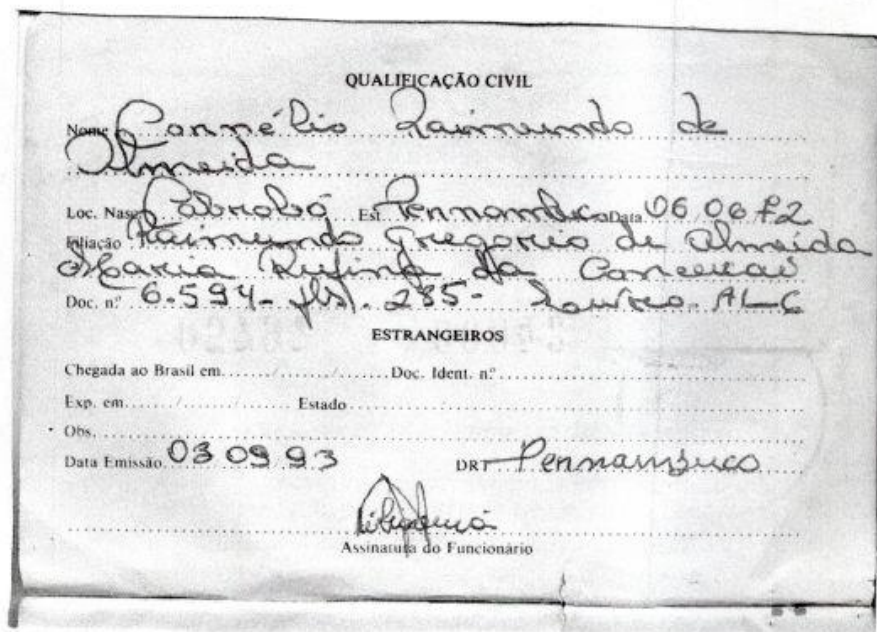 QUALIFICAÇÃO CIVIL
Nome Cornélio Raimundo de
Almeida
Loc. Nasc. Cabrobó Est. Pernambuco Data 06 06 72
Filiação Raimundo Gregorio de Almeida
Maria Rufina da Conceicaõ
Doc. nº 6.594- fls. 285- AL-C
ESTRANGEIROS
Chegada ao Brasil em ......../......../........ Doc. Ident. nº
Exp. em ......../......../........ Estado
Obs.
Data Emissão 03 09 93 DRT Pernambuco
Assinatura do Funcionário